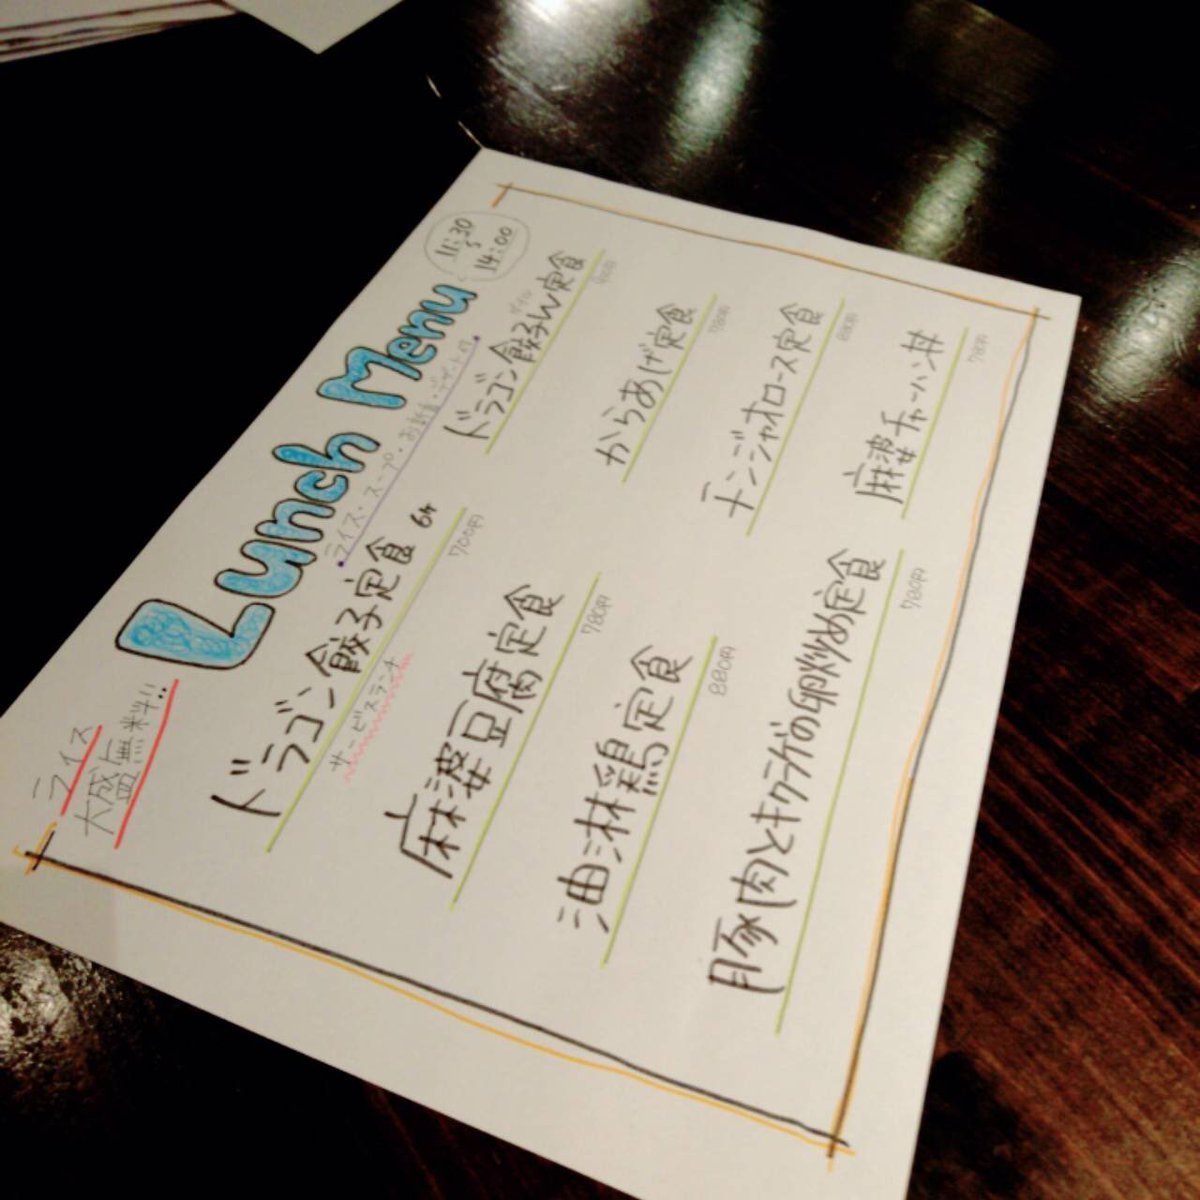 ライス
大盛無料!!
Lunch Menu
11:30
〜
14:00
ライス・スープ・お新香・デザート付
ドラゴン餃子定食 6ヶ
700円
サービスランチ
ドラゴン餃子ん定食
麻婆豆腐定食
780円
からあげ定食
780円
油淋鶏定食
880円
チンジャオロース定食
880円
豚肉とキクラゲの卵炒め定食
780円
麻婆チャーハン丼
780円